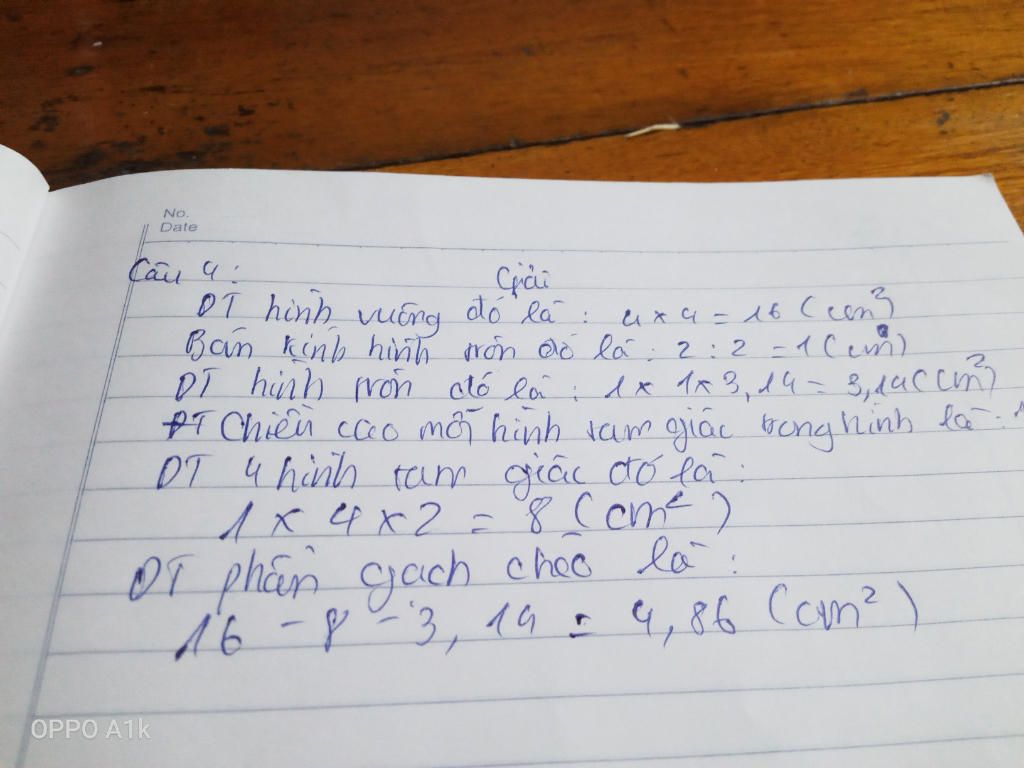 No.
Date
Câu 4:
Giải
DT hình vuông đó là: 4 x 4 = 16 (cm²)
Bán kính hình tròn đó là: 2 : 2 = 1 (cm)
DT hình tròn đó là: 1 x 1 x 3,14 = 3,14 (cm²)
Chiều cao mỗi hình tam giác trong hình là: 1
DT 4 hình tam giác đó là:
1 x 4 x 2 = 8 (cm²)
DT phần gạch chéo là:
16 - 8 - 3,14 = 4,86 (cm²)
OPPO A1k